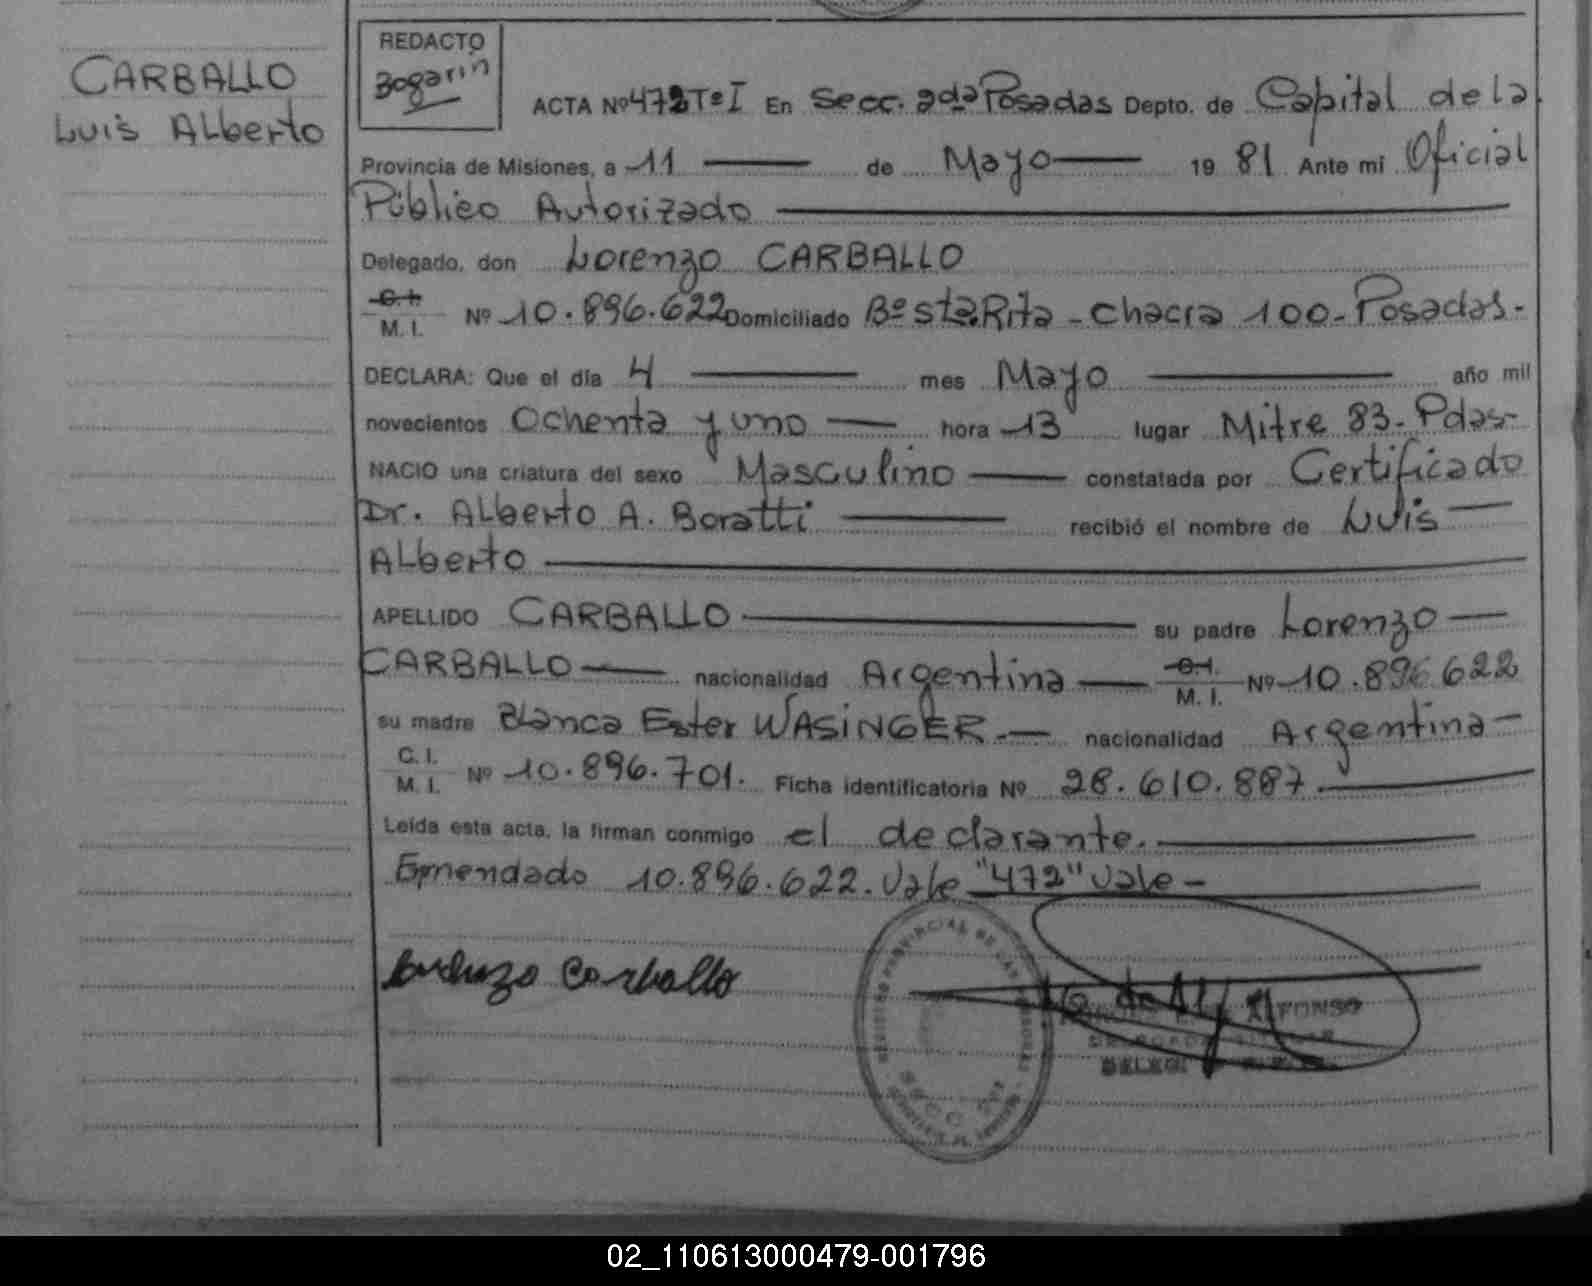 CARBALLO
Luis Alberto
REDACTO
Bogarin
ACTA Nº 472 Tº I En Secc. 2da Posadas Depto. de Capital de la
Provincia de Misiones, a 11 de Mayo 19 81 Ante mi Oficial
Público Autorizado
Delegado, don Lorenzo CARBALLO
C.I. M. I. Nº 10.896.622 Domiciliado Bº Sta. Rita - Chacra 100 - Posadas -
DECLARA: Que el día 4 mes Mayo año mil
novecientos Ochenta y uno hora 13 lugar Mitre 83 - Pdas -
NACIO una criatura del sexo Masculino constatada por Certificado
Dr. Alberto A. Boratti recibió el nombre de Luis
Alberto
APELLIDO CARBALLO su padre Lorenzo
CARBALLO nacionalidad Argentina C.I. M. I. Nº 10.896.622
su madre Blanca Ester WASINGER.- nacionalidad Argentina -
C. I. M. I. Nº 10.896.701. Ficha identificatoria Nº 28.610.887.
Leída esta acta, la firman conmigo el declarante.
Enmendado 10.896.622. Vale "472" Vale -
Lorenzo Carballo
ALFONSO
02_110613000479-001796